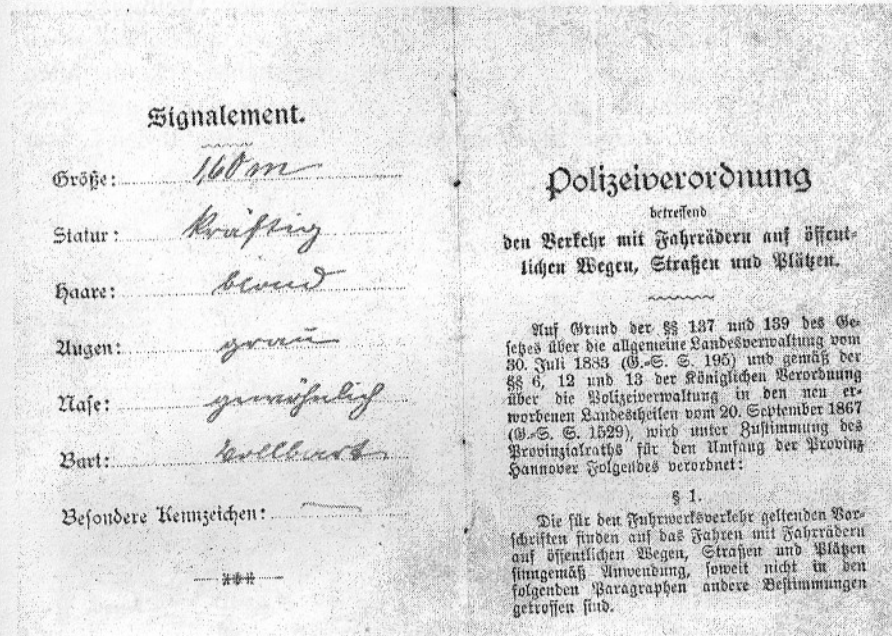 Signalement.
Größe: 1,60 m
Statur: kräftig
Haare: blond
Augen: grau
Nase: gewöhnlich
Bart: Vollbart
Besondere Kennzeichen: —
Polizeiverordnung
betreffend
den Verkehr mit Fahrrädern auf öffent-
lichen Wegen, Straßen und Plätzen.
Auf Grund der §§ 137 und 139 des Ge-
setzes über die allgemeine Landesverwaltung vom
30. Juli 1883 (G.-S. S. 195) und gemäß der
§§ 6, 12 und 13 der Königlichen Verordnung
über die Polizeiverwaltung in den neu er-
worbenen Landestheilen vom 20. September 1867
(G.-S. S. 1529), wird unter Zustimmung des
Provinzialraths für den Umfang der Provinz
Hannover Folgendes verordnet:
§ 1.
Die für den Fuhrwerksverkehr geltenden Vor-
schriften finden auf das Fahren mit Fahrrädern
auf öffentlichen Wegen, Straßen und Plätzen
sinngemäß Anwendung, soweit nicht in den
folgenden Paragraphen andere Bestimmungen
getroffen sind.